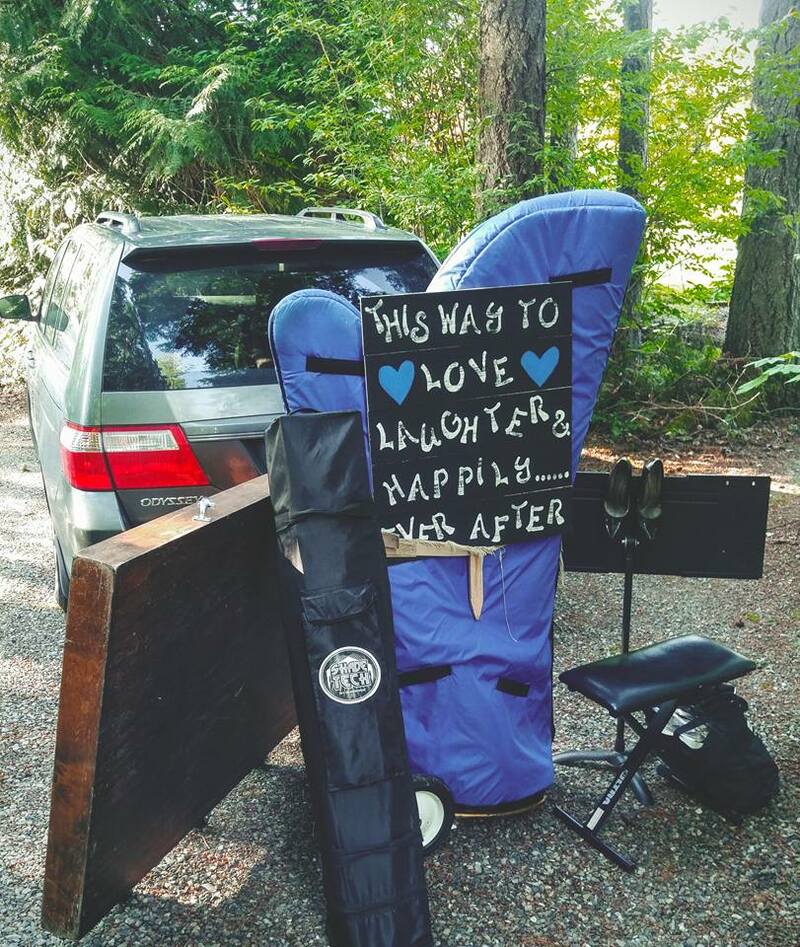 THIS WAY TO
LOVE
LAUGHTER &
HAPPILY......
EVER AFTER
ODYSSEY
SHADE
TECH